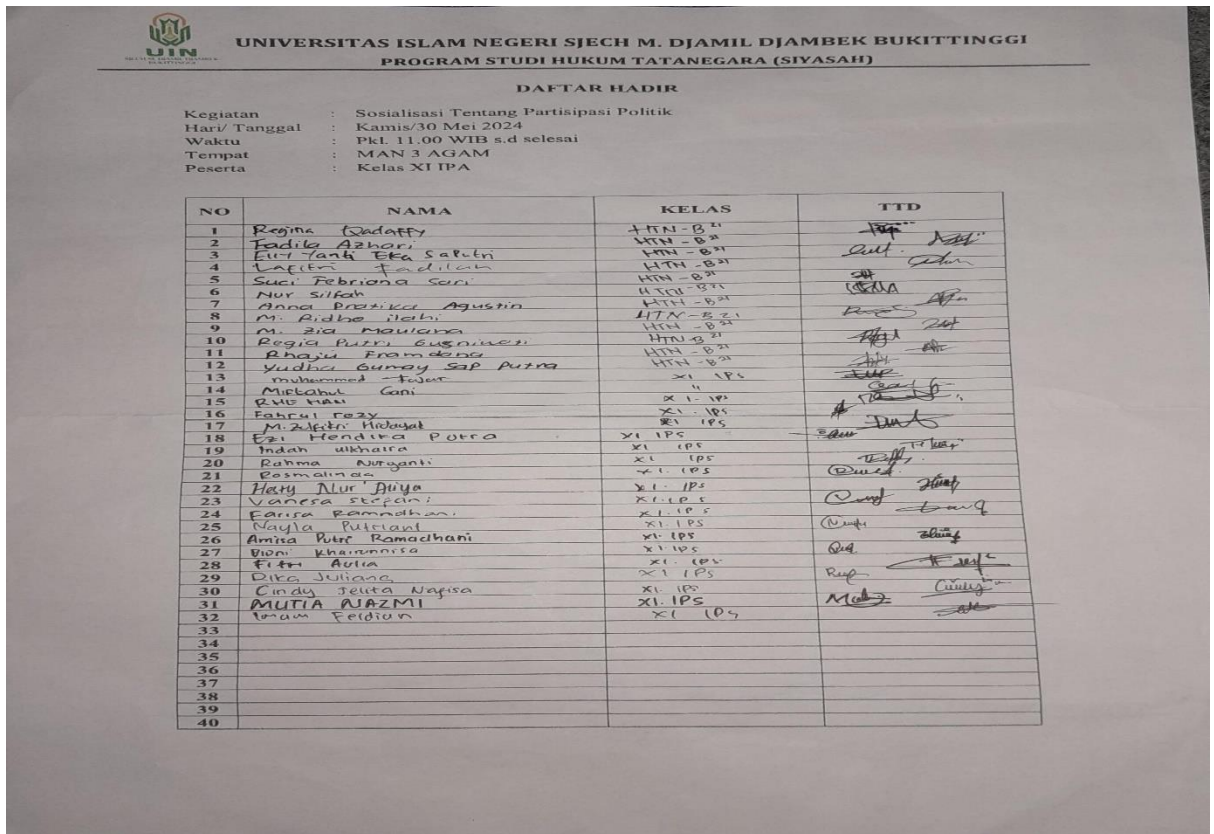 UIN
UNIVERSITAS ISLAM NEGERI SJECH M. DJAMIL DJAMBEK BUKITTINGGI
PROGRAM STUDI HUKUM TATANEGARA (SIYASAH)
DAFTAR HADIR
Kegiatan : Sosialisasi Tentang Partisipasi Politik
Hari/ Tanggal : Kamis/30 Mei 2024
Waktu : Pkl. 11.00 WIB s.d selesai
Tempat : MAN 3 AGAM
Peserta : Kelas XI IPA
NO NAMA KELAS TTD
1 Regina Qadaffy HTN-B 21
2 Fadila Azhari HTN-B 21
3 Elly Yanti Eka Saputri HTN-B 21
4 Lafitri Fadilah HTN-B 21
5 Suci Febriana Sari HTN-B 21
6 Nur Silfah HTN-B 21
7 Anna Pratika Agustin HTN-B 21
8 M. Ridho ilahi HTN-B 21
9 M. Zia Maulana HTN-B 21
10 Regia Putri Gusniwati HTN-B 21
11 Rhaju Framdana HTN-B 21
12 Yudha Gunay Sap Putra HTN-B 21
13 muhammad Fajar XI IPS
14 Miftahul Gani "
15 XI. IPS
16 Fahrul rozy XI. IPS
17 M. Zulfitri Hidayat XI IPS
18 Ezi Hendira Putra XI IPS
19 Indah ulkhaira XI IPS
20 Rahma Nuryanti XI IPS
21 Rosmalinda XI. IPS
22 Hany Nur Aliya XI. IPS
23 Vanesa Stefani XI. IPS
24 Farisa Ramadhani XI. IPS
25 Nayla Putriani XI. IPS
26 Amisa Putri Ramadhani XI. IPS
27 Dioni Khairunnisa XI IPS
28 Fitri Aulia XI. IPS
29 Dika Juliana XI IPS
30 Cindy Jelita Nafisa XI. IPS
31 MUTIA NAZMI XI. IPS
32 Imam Ferdian XI IPS
33
34
35
36
37
38
39
40